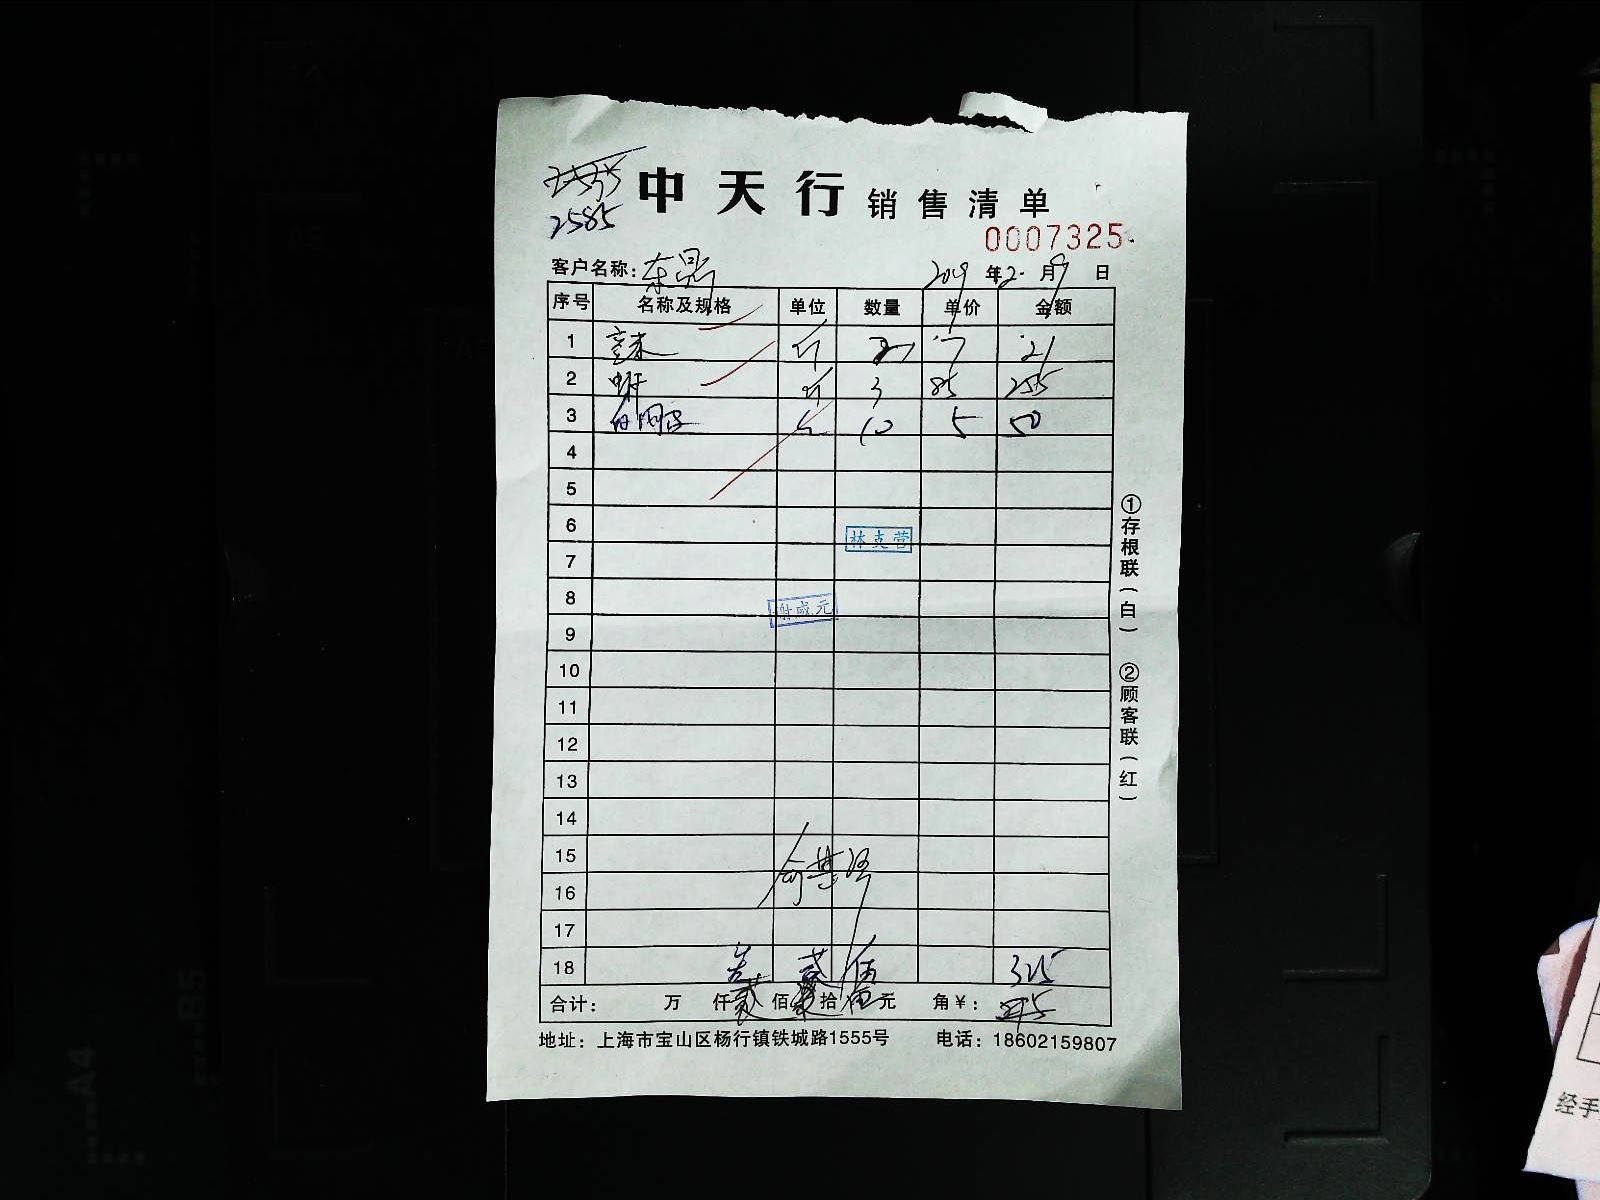 中天行 销售清单
2585
0007325
客户名称: 东鼎 2019年2月9日
序号 名称及规格 单位 数量 单价 金额
1 斤 7 21
2 虾 斤 3 85 255
3 10 5 50
4
5
6
林支营
7
8
谢成元
9
10
11
12
13
14
15
16
17
18 叁 贰 伍 325
合计: 万 仟 佰 拾 元 角¥:
地址: 上海市宝山区杨行镇铁城路1555号 电话: 18602159807
①存根联(白) ②顾客联(红)
A4
B5
经手